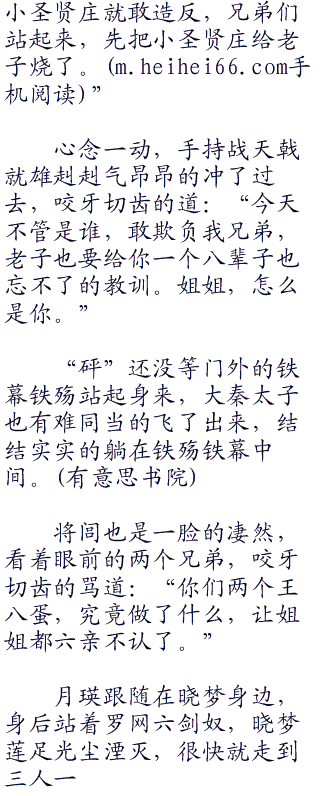 小圣贤庄就敢造反，兄弟们
站起来，先把小圣贤庄给老
子烧了。(m.heihei66.com手
机阅读)”
心念一动，手持战天戟
就雄赳赳气昂昂的冲了过
去，咬牙切齿的道：“今天
不管是谁，敢欺负我兄弟，
老子也要给你一个八辈子也
忘不了的教训。姐姐，怎么
是你。”
“砰”还没等门外的铁
幕铁殇站起身来，大秦太子
也有难同当的飞了出来，结
结实实的躺在铁殇铁幕中
间。(有意思书院)
将闾也是一脸的凄然，
看着眼前的两个兄弟，咬牙
切齿的骂道：“你们两个王
八蛋，究竟做了什么，让姐
姐都六亲不认了。”
月瑛跟随在晓梦身边，
身后站着罗网六剑奴，晓梦
莲足光尘湮灭，很快就走到
三人一